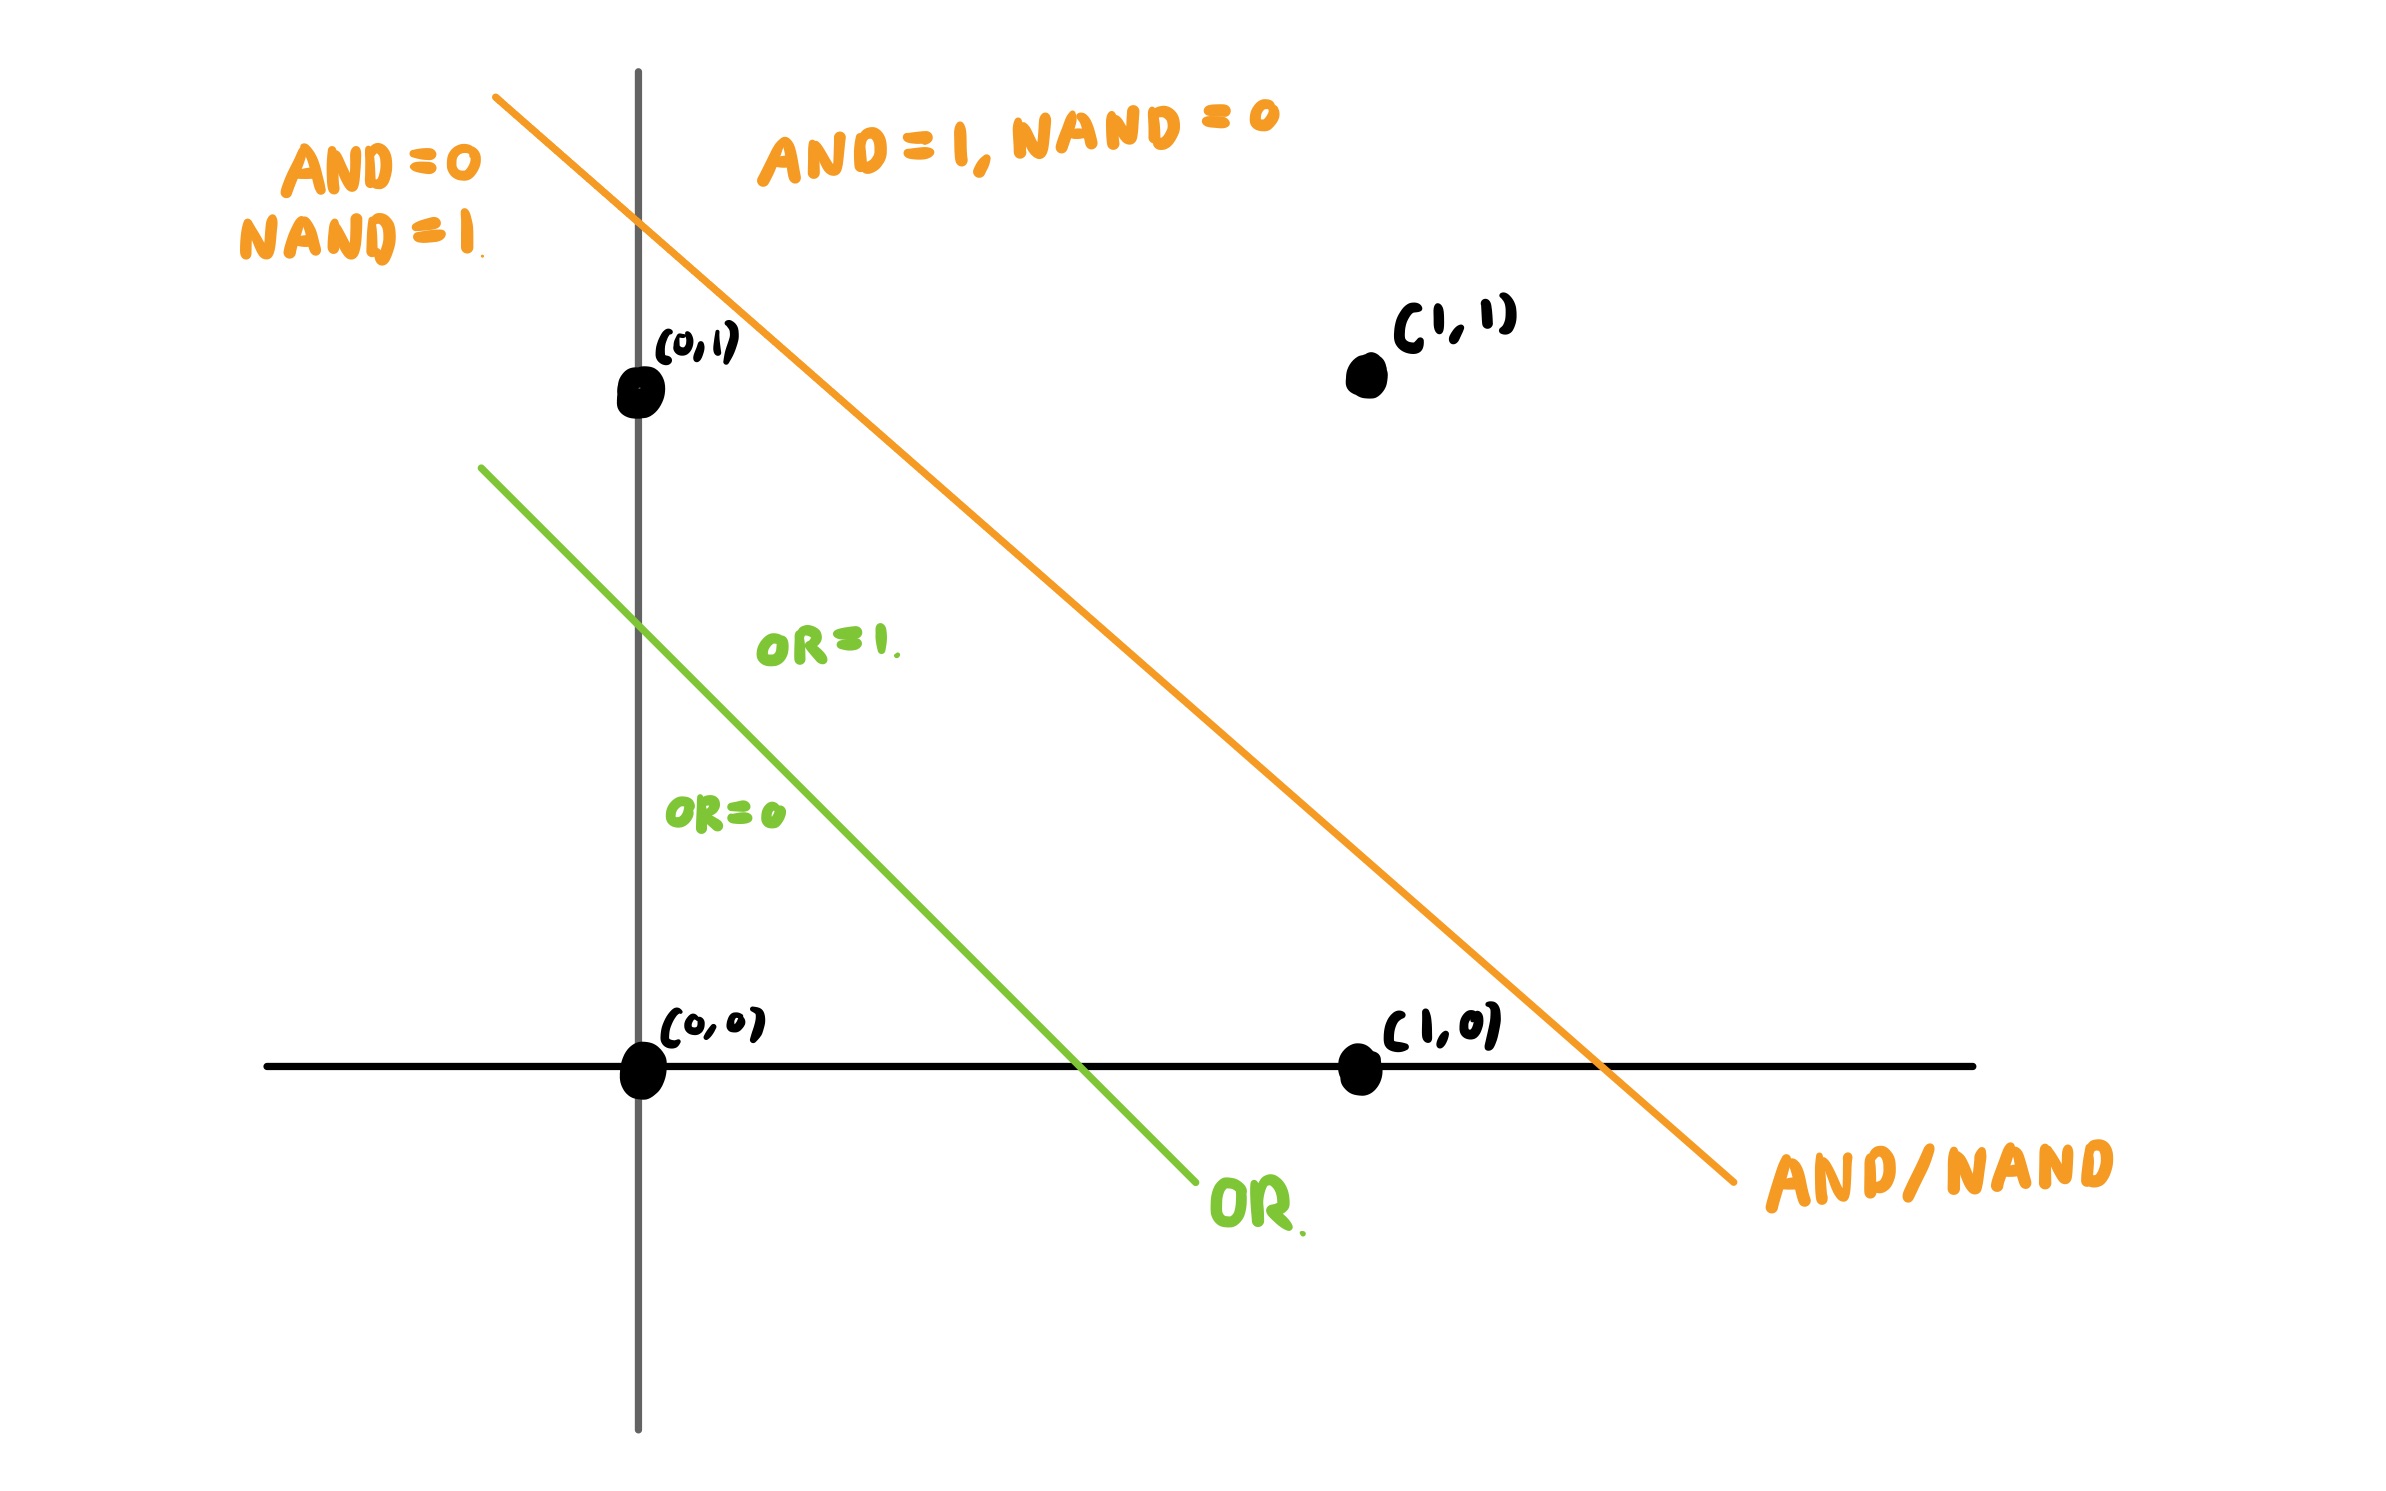 AND=0
NAND=1.
AND=1, NAND=0
(0,1)
(1,1)
OR=1.
OR=0
(0,0)
(1,0)
OR.
AND/NAND